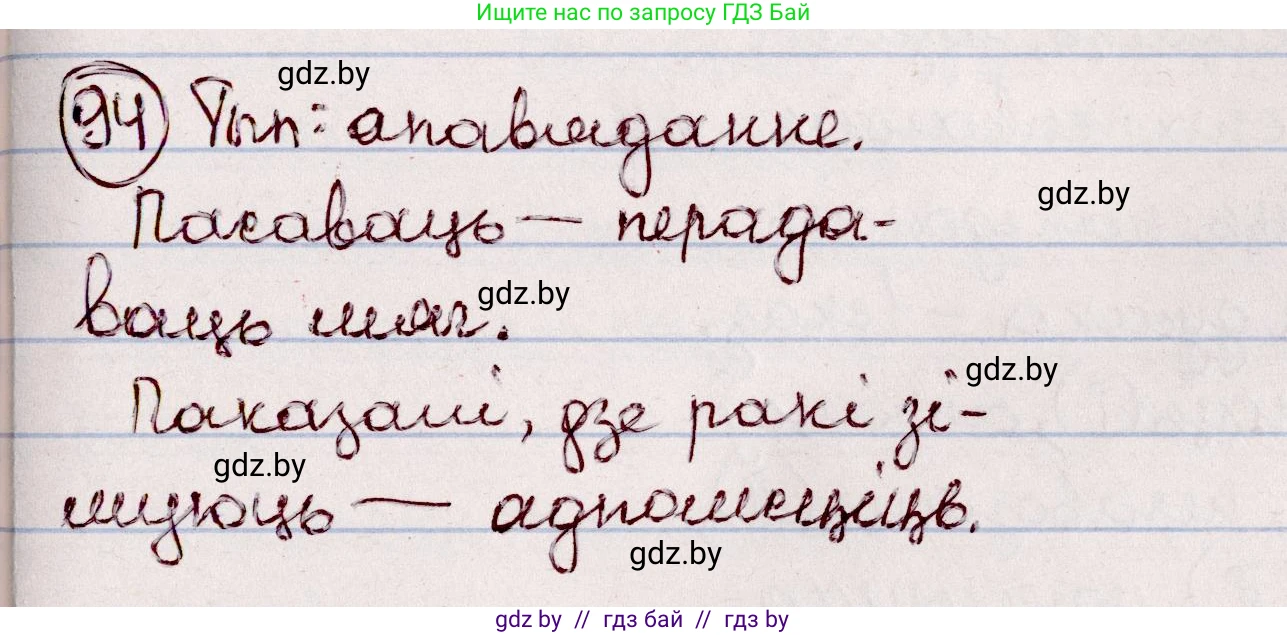 Ищите нас по запросу ГДЗ Бай
gdz.by
94 Тып: апавяданне.
gdz.by
Пасаваць — перада-
gdz.by
ваць мяч.
gdz.by
Паказалі, дзе ракі зі-
gdz.by
муюць — адпомсціць.
gdz.by
gdz by // гдз бай // гдз by